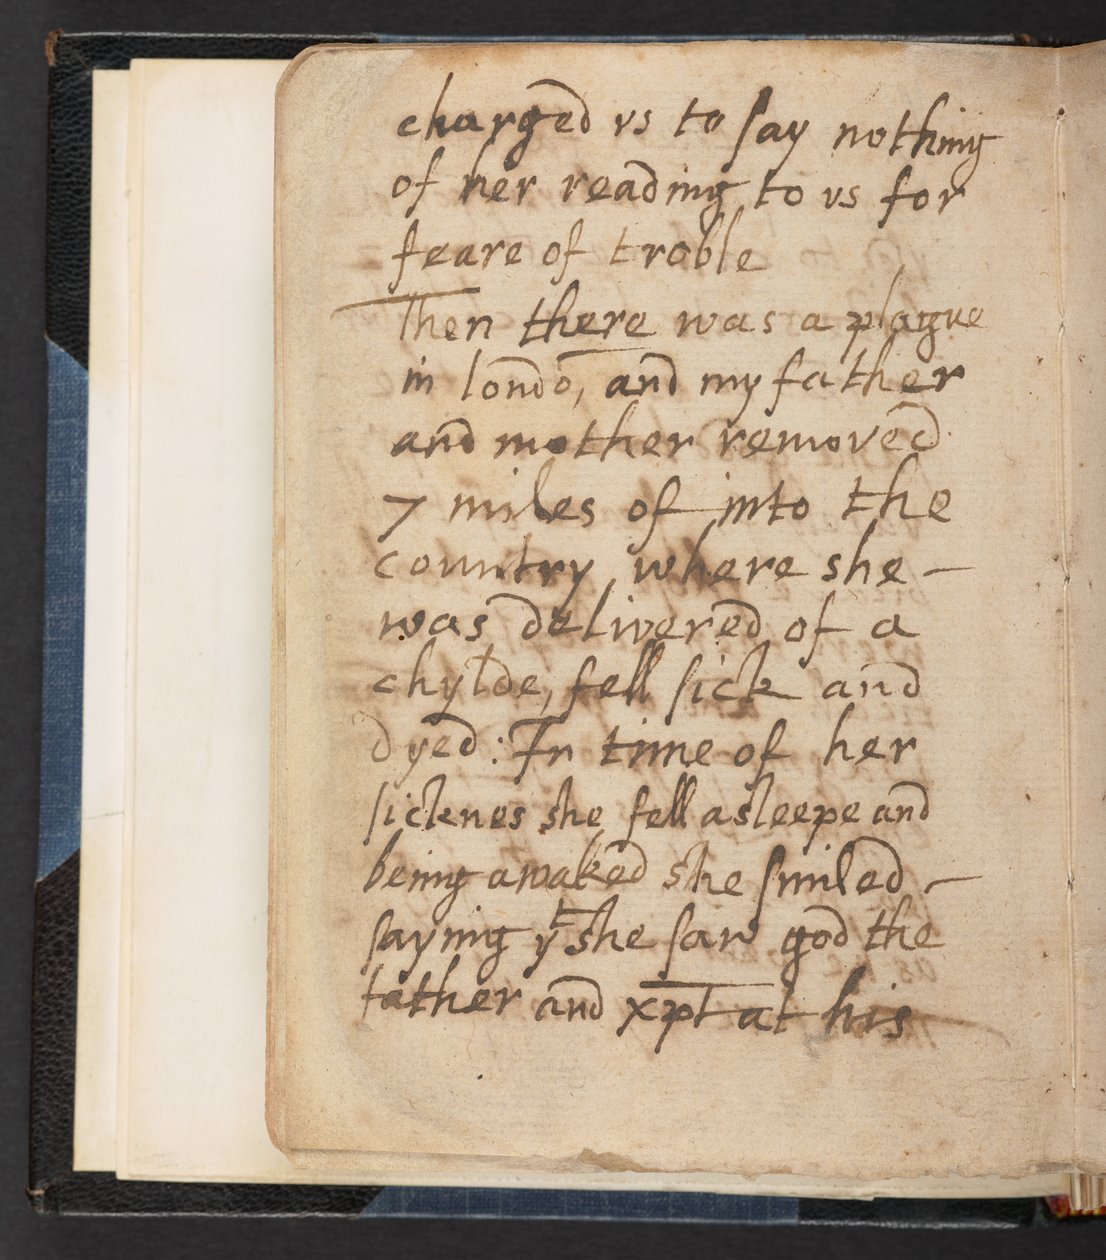 charged vs to say nothing
of her reading to vs for
feare of troble
Then there was a plague
in londō, and my father
and mother removed
7 miles of into the
country, where she –
was delivered of a
chylde, fell sick and
dyed: In time of her
sicknes she fell asleepe and
being awaked she smiled –
saying yᵗ she saw god the
father and xp̄t at his